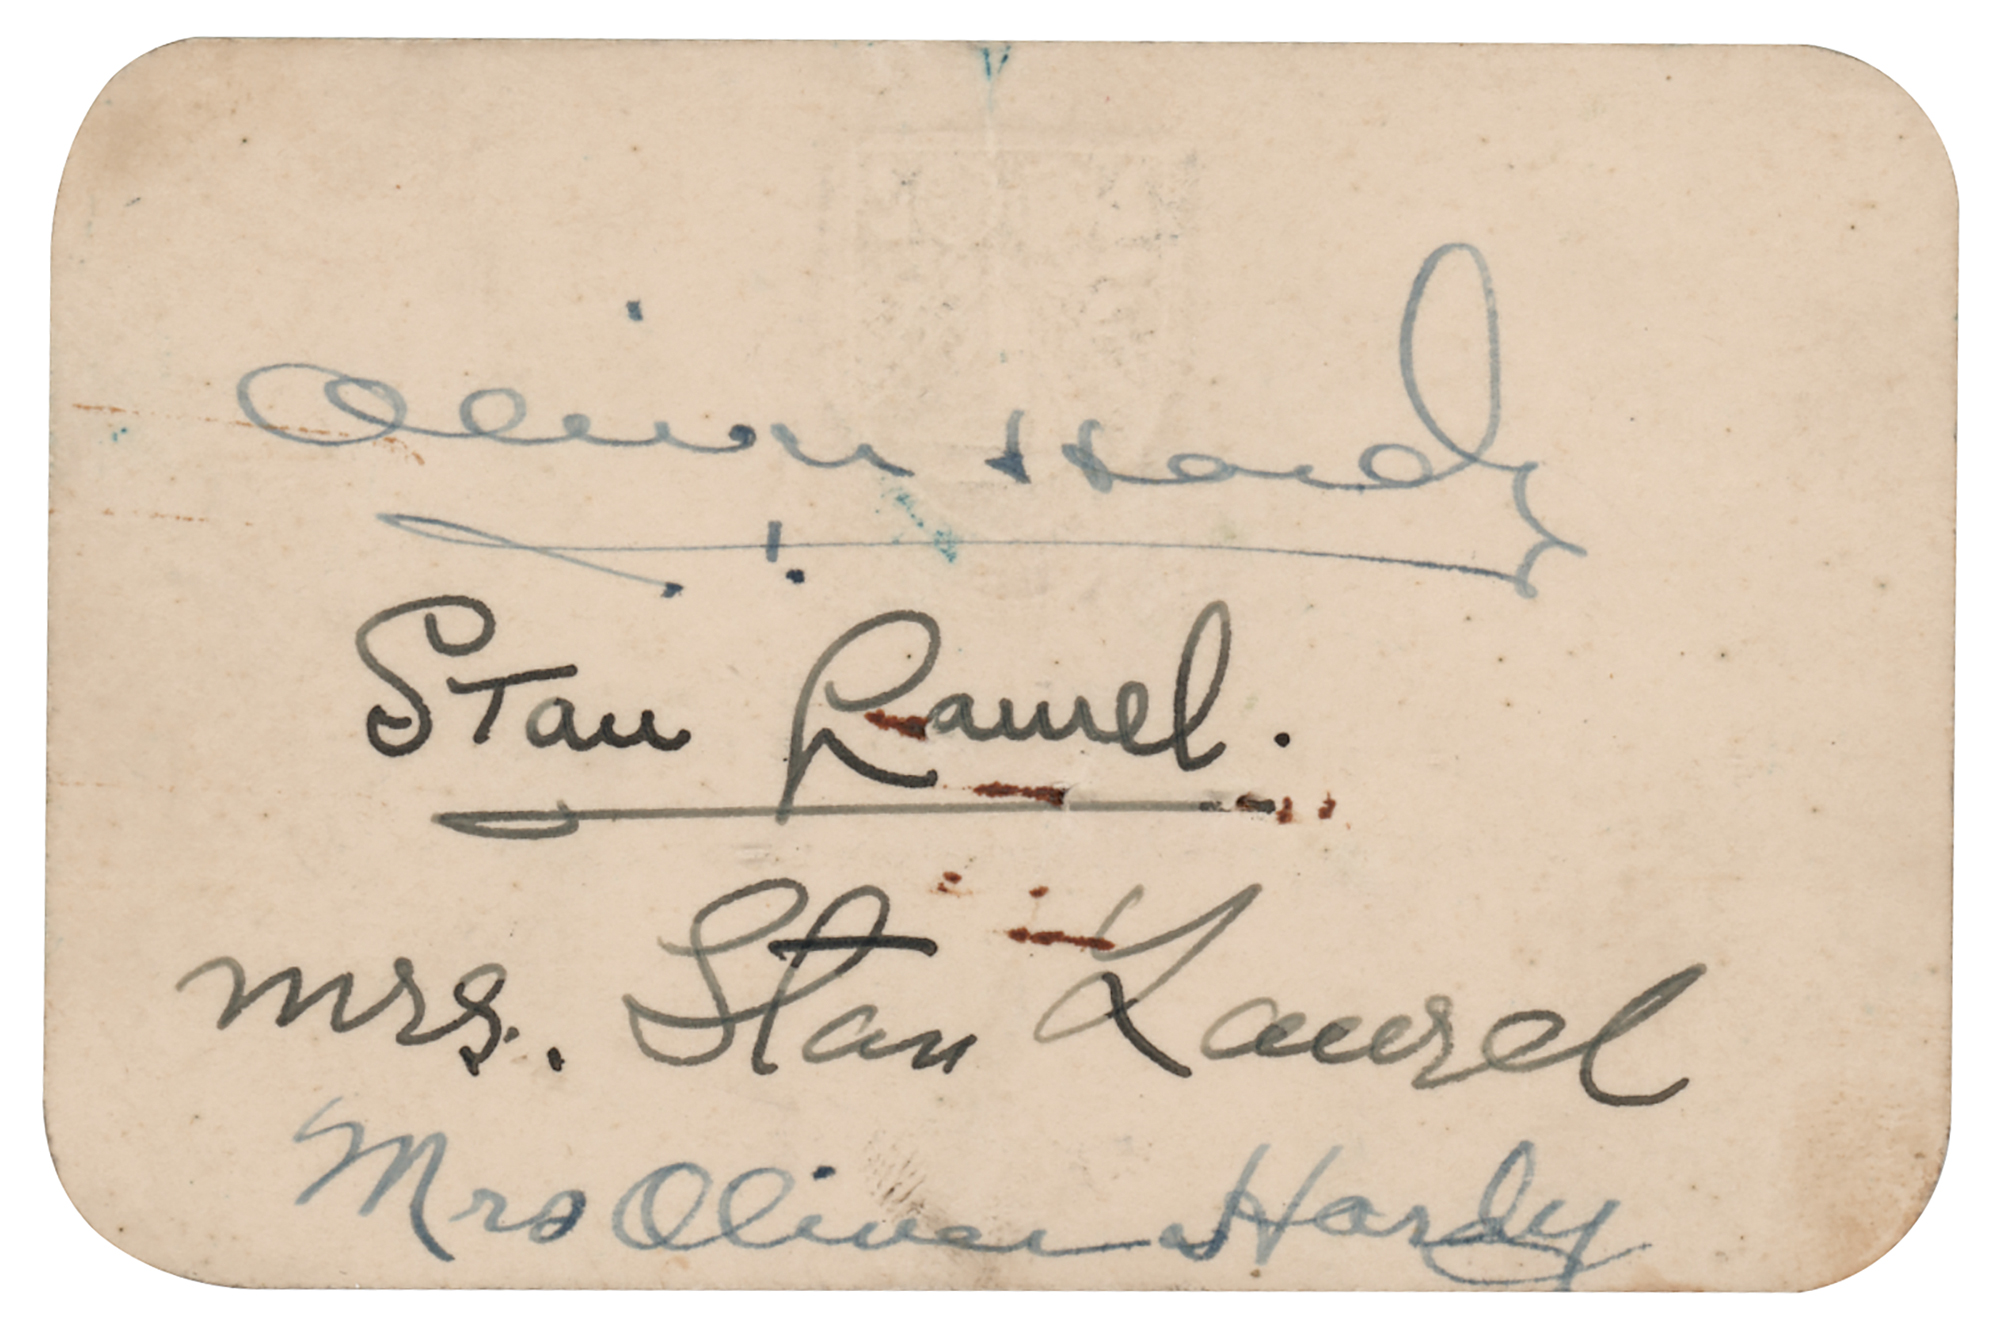 Oliver Hardy
Stan Laurel.
Mrs. Stan Laurel
Mrs Oliver Hardy